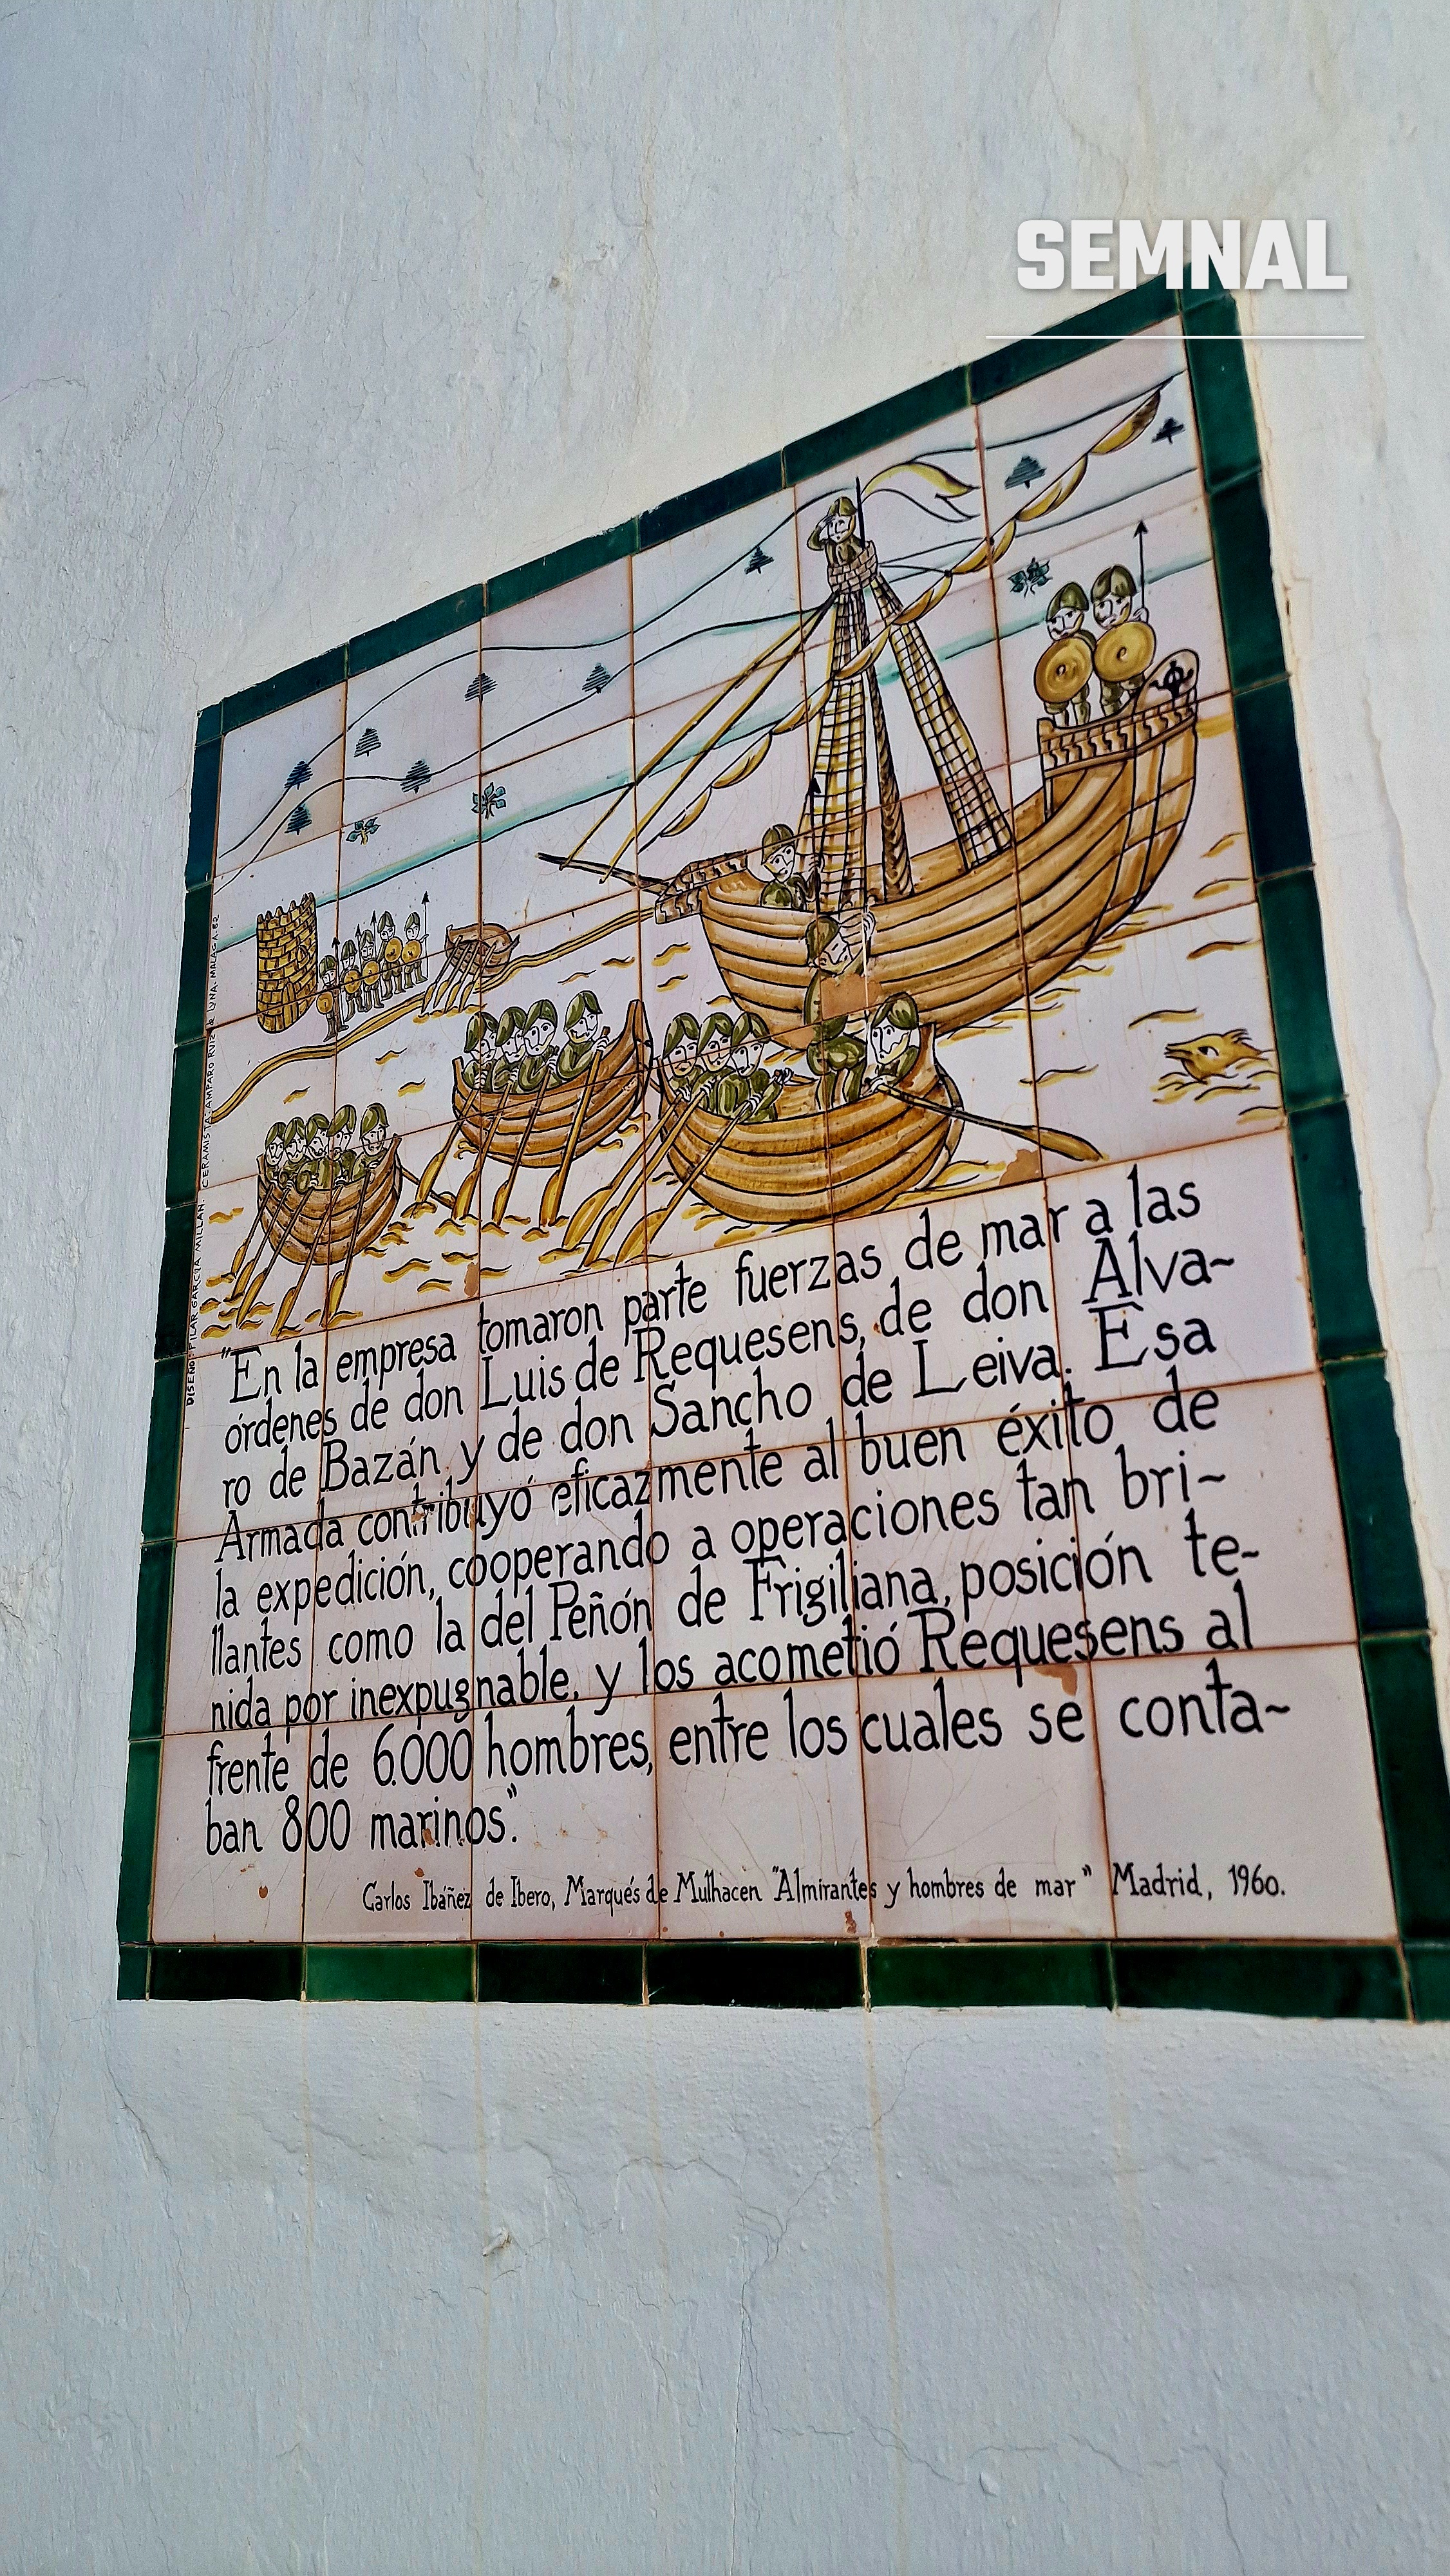 SEMNAL
"En la empresa tomaron parte fuerzas de mar a las
órdenes de don Luis de Requesens, de don Alva~
ro de Bazán y de don Sancho de Leiva. Esa
Armada contribuyó eficazmente al buen éxito de
la expedición, cooperando a operaciones tan bri~
llantes como la del Peñón de Frigiliana, posición te~
nida por inexpugnable, y los acometió Requesens al
frente de 6.000 hombres, entre los cuales se conta~
ban 800 marinos".
Carlos Ibáñez de Ibero, Marqués de Mulhacen "Almirantes y hombres de mar" Madrid, 1960.
DISEÑO: PILAR GARCIA MILLAN. CERAMISTA: AMPARO RUIZ DE LUNA. MALAGA. 82